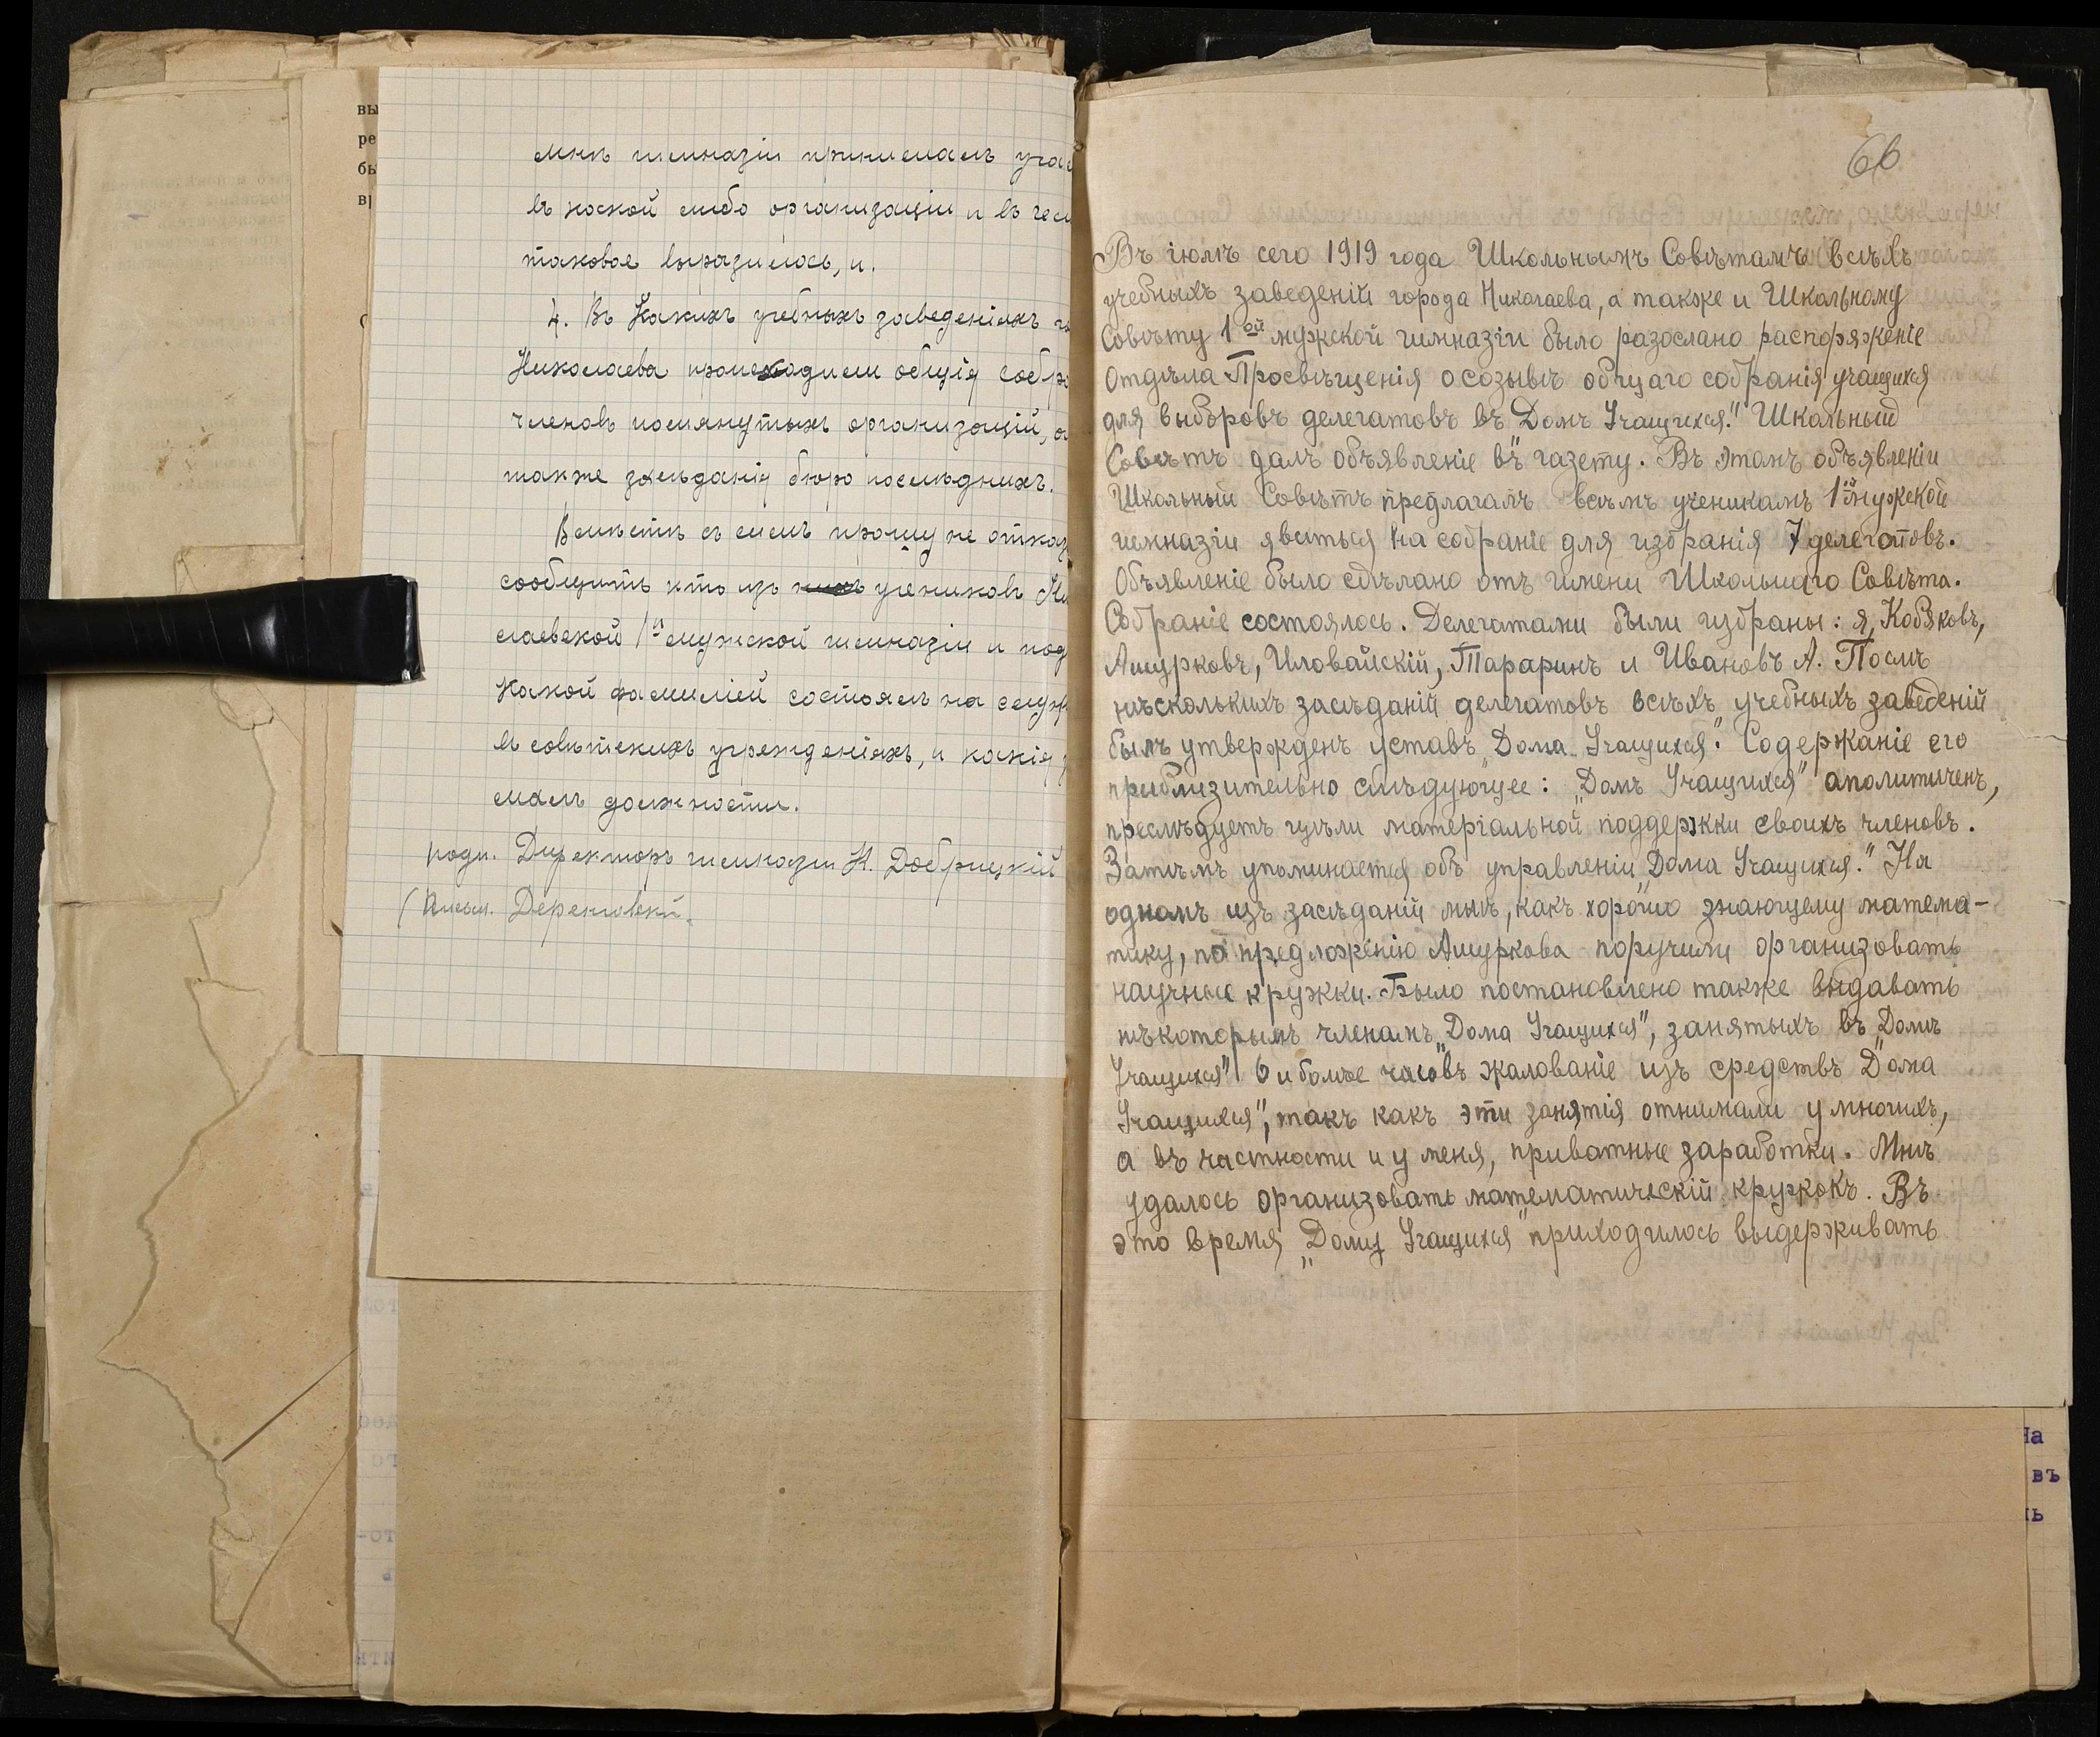 мнѣ гимназіи принималъ учас
въ какой либо организаціи и въ чем
таковое выразилось, и.
4. Въ Какихъ учебныхъ заведеніяхъ г.
Николаева происходили общія собра
членовъ помянутыхъ организацій, а
также засѣданія бюро послѣднихъ.
Вмѣстѣ съ симъ прошу не отказ
сообщить кто изъ учениковъ Ни
лаевской 1й мужской гимназіи и под
какой фамиліей состоялъ на служ
въ совѣтскихъ учрежденіяхъ, и какія
малъ должности.
подп. Директоръ гимназіи Н. Добрицкій
66
Въ іюлѣ сего 1919 года Школьнымъ Совѣтамъ всѣхъ
учебныхъ заведеній города Николаева, а также и Школьному
Совѣту 1ой мужской гимназіи было разослано распоряженіе
Отдѣла Просвѣщенія о созывѣ общаго собранія учащихся
для выборовъ делегатовъ въ „Домъ Учащихся". Школьный
Совѣтъ далъ объявленіе въ газету. Въ этомъ объявленіи
Школьный Совѣтъ предлагалъ всѣмъ ученикамъ 1й мужской
гимназіи явиться на собраніе для избранія 7 делегатовъ.
Объявленіе было сдѣлано отъ имени Школьнаго Совѣта.
Собраніе состоялось. Делегатами были избраны: я, Кобяковъ,
Ашурковъ, Иловайскій, Тараринъ и Ивановъ А. Послѣ
нѣсколькихъ засѣданій делегатовъ всѣхъ учебныхъ заведеній
былъ утвержденъ уставъ „Дома Учащихся". Содержаніе его
приблизительно слѣдующее: „Домъ Учащихся" аполитиченъ,
преслѣдуетъ цѣли матеріальной поддержки своихъ членовъ.
Затѣмъ упоминается объ управленіи „Дома Учащихся". На
одномъ изъ засѣданій мнѣ, какъ хорошо знающему матема-
тику, по предложенію Ашуркова поручили организовать
научные кружки. Было постановлено также выдавать
нѣкоторымъ членамъ „Дома Учащихся", занятыхъ въ „Домѣ
Учащихся" 6 и болѣе часовъ жалованіе изъ средствъ „Дома
Учащихся", такъ какъ эти занятія отнимали у многихъ,
а въ частности и у меня, приватные заработки. Мнѣ
удалось организовать математическій кружокъ. Въ
это время „Дому Учащихся" приходилось выдерживать